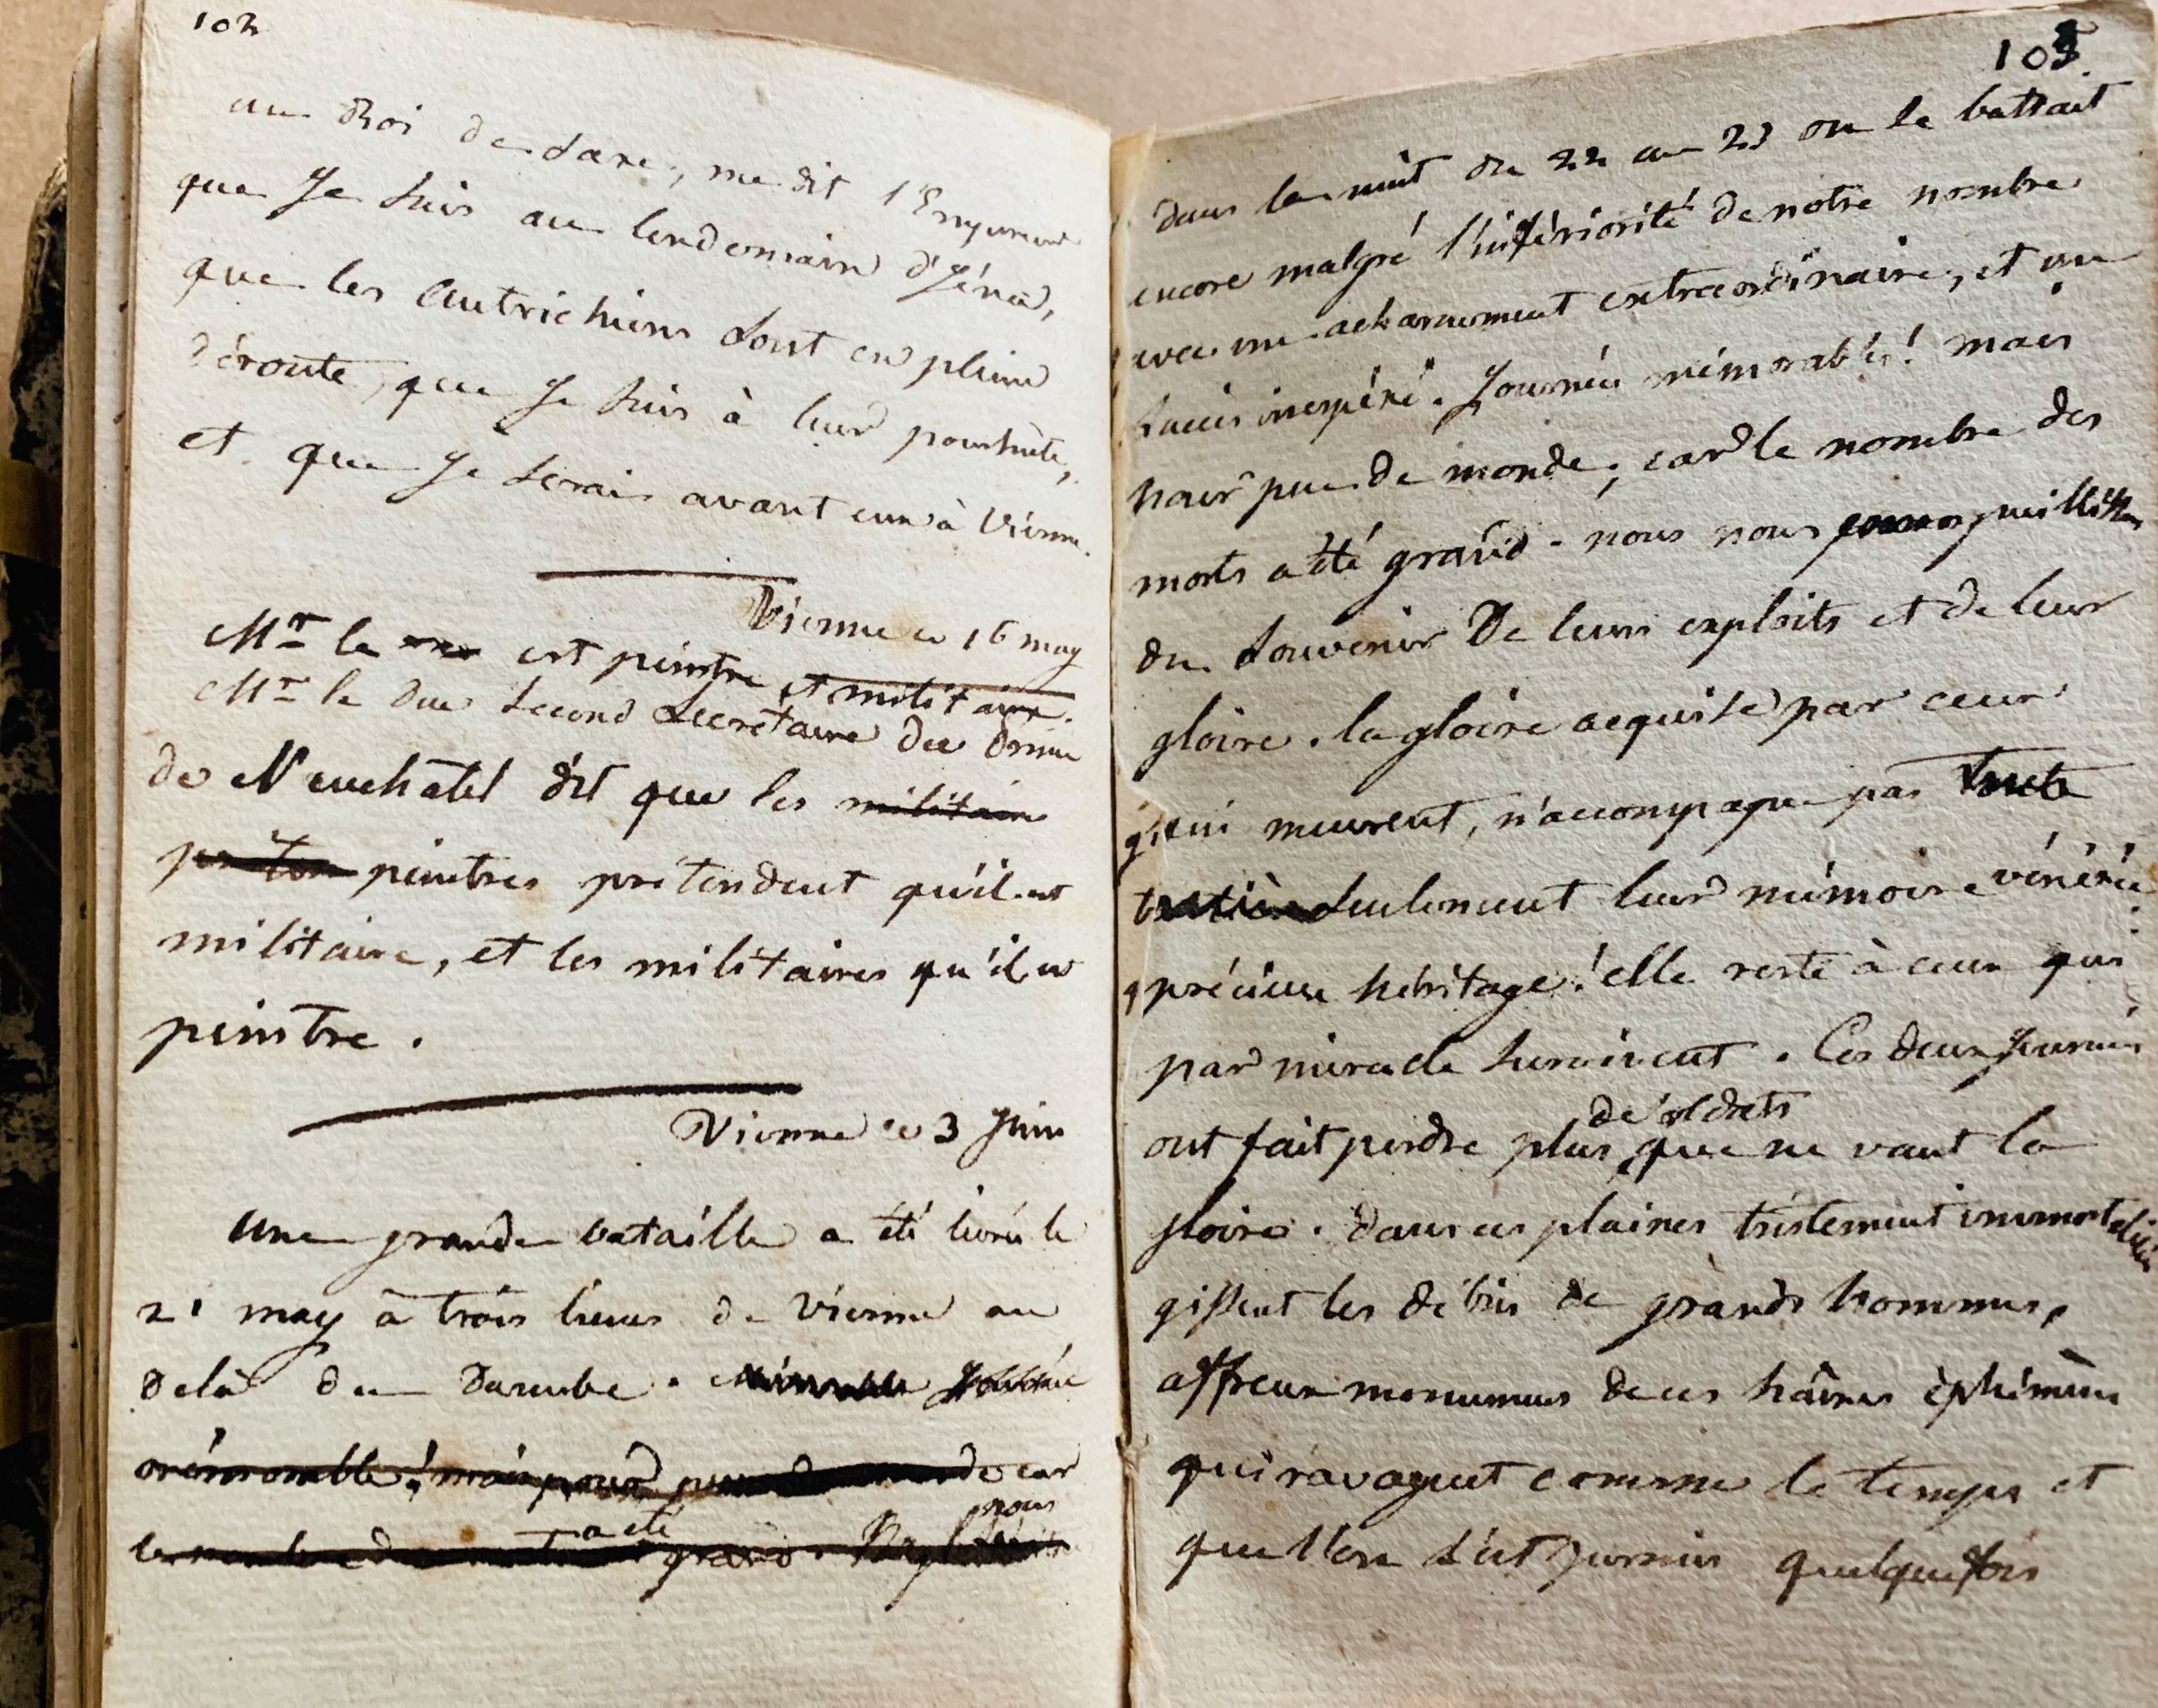 102
au Roi de Saxe, me dit l'Empereur
que Je suis au lendemain d'Jéna,
que les autrichiens sont en pleine
déroute, que Je suis à leur poursuite,
et que Je serai avant eux à Vienne.
Vienne ce 16 may
Mr le est peintre et militaire.
Mr le Duc second Secrétaire du Prince
de Neuchatel dit que les militaires
peintres prétendent qu'il est
militaire, et les militaires qu'il est
peintre.
Vienne ce 3 Juin
Une grande bataille a été livrée le
21 may à trois lieues de Vienne au
delà du Danube. Journée
mémorable! mais pour peu de monde car
nous
a été
le nombre des morts grand.
103
dans la nuit du 22 au 23 on se battait
encore malgré l'infériorité de notre nombre
avec un acharnement extraordinaire, et un
succès inespéré. Journées mémorables! mais
pour peu de monde, car le nombre des
morts a été grand. nous nous
du souvenir de leurs exploits et de leur
gloire. la gloire acquise par ceux
qui meurent, n'accompagne pas
seulement leur mémoire vénérée
précieux héritage! elle reste à ceux qui
par miracle survivent. Ces deux Journées
de soldats
ont fait perdre plus que ne vaut la
gloire. dans ces plaines tristement immortalisées
gissent les débris de grands hommes,
affreux monumens de ces haînes éphémères
qui ravagent comme le temps et
que l'on s'est quelquefois